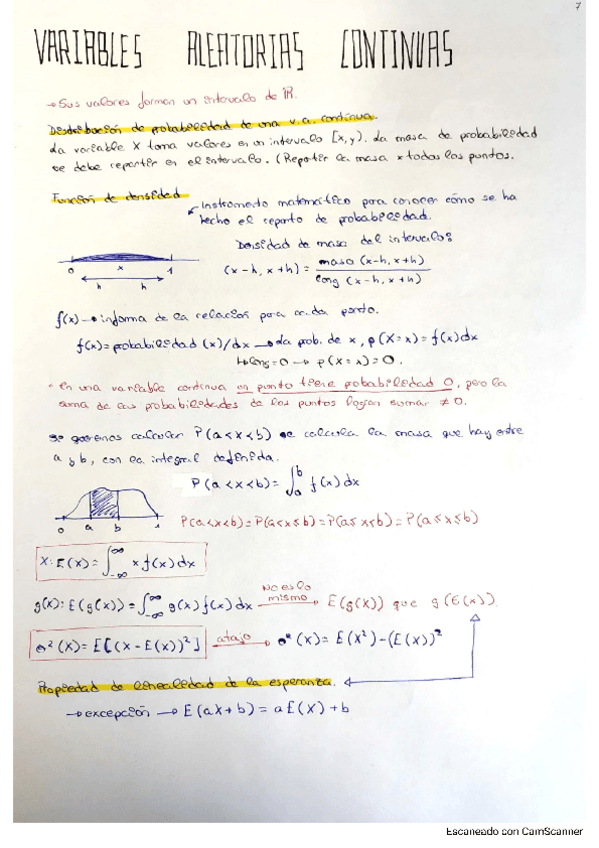 7
VARIABLES ALEATORIAS CONTINUAS
→ Sus valores forman un intervalo de ℝ.
Distribución de probabilidad de una v.a. continua.
La variable X toma valores en un intervalo [x,y). La masa de probabilidad
se debe repartir en el intervalo. (Repartir la masa x todos los puntos.
Función de densidad
Instrumento matemático para conocer cómo se ha
hecho el reparto de probabilidad.
Densidad de masa del intervalo:
(x-h, x+h) = masa (x-h, x+h) / long (x-h, x+h)
0 x 1
h h
f(x) → informa de la relación para cada punto.
f(x) = probabilidad (x)/dx → La prob. de x, p(X=x) = f(x)dx
long = 0 → p(X=x) = 0.
* En una variable continua un punto tiene probabilidad 0, pero la
suma de las probabilidades de los puntos logran sumar ≠ 0.
Si queremos calcular P(a<x<b) se calcula la masa que hay entre
a y b, con la integral definida.
P(a<x<b) = ∫_a^b f(x)dx
0 a b 1
P(a<x<b) = P(a<x≤b) = P(a≤x<b) = P(a≤x≤b)
X: E(x) = ∫_-∞^∞ x f(x) dx
g(x): E(g(x)) = ∫_-∞^∞ g(x) f(x) dx No es lo mismo → E(g(x)) que g(E(x)).
σ²(X) = E[(X-E(X))²] atajo → σ²(X) = E(X²) - (E(X))²
Propiedad de linealidad de la esperanza.
→ excepción → E(aX+b) = aE(X)+b
Escaneado con CamScanner